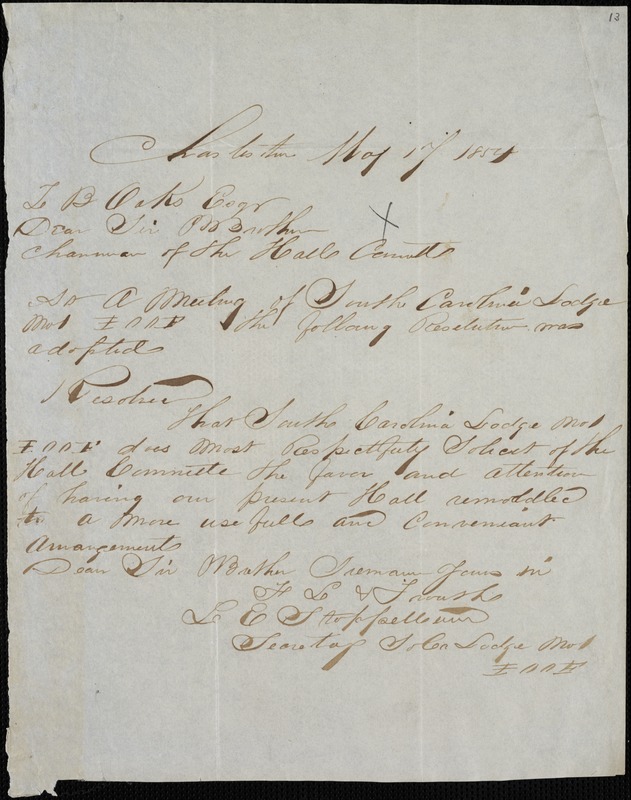 13
Charleston May 17 1854
Z B Oaks Esqr
Dear Sir & Brother
Chairman of the Halls Committe
At A Meeting of South Carolina Lodge
No 1 I O O F the following Resolution was
adopted
Resolved
That South Carolina Lodge No 1
I O O F does most Respectfuly Solicit of the
Hall Committe the favor and attention
of having our present Hall remodled
to a more usefull and Conveniant
Arrangements
Dear Sir & Brother I remain yours in
F L & Trouth
L E Stoppelbein
Secretay So Ca Lodge No 1
I O O F